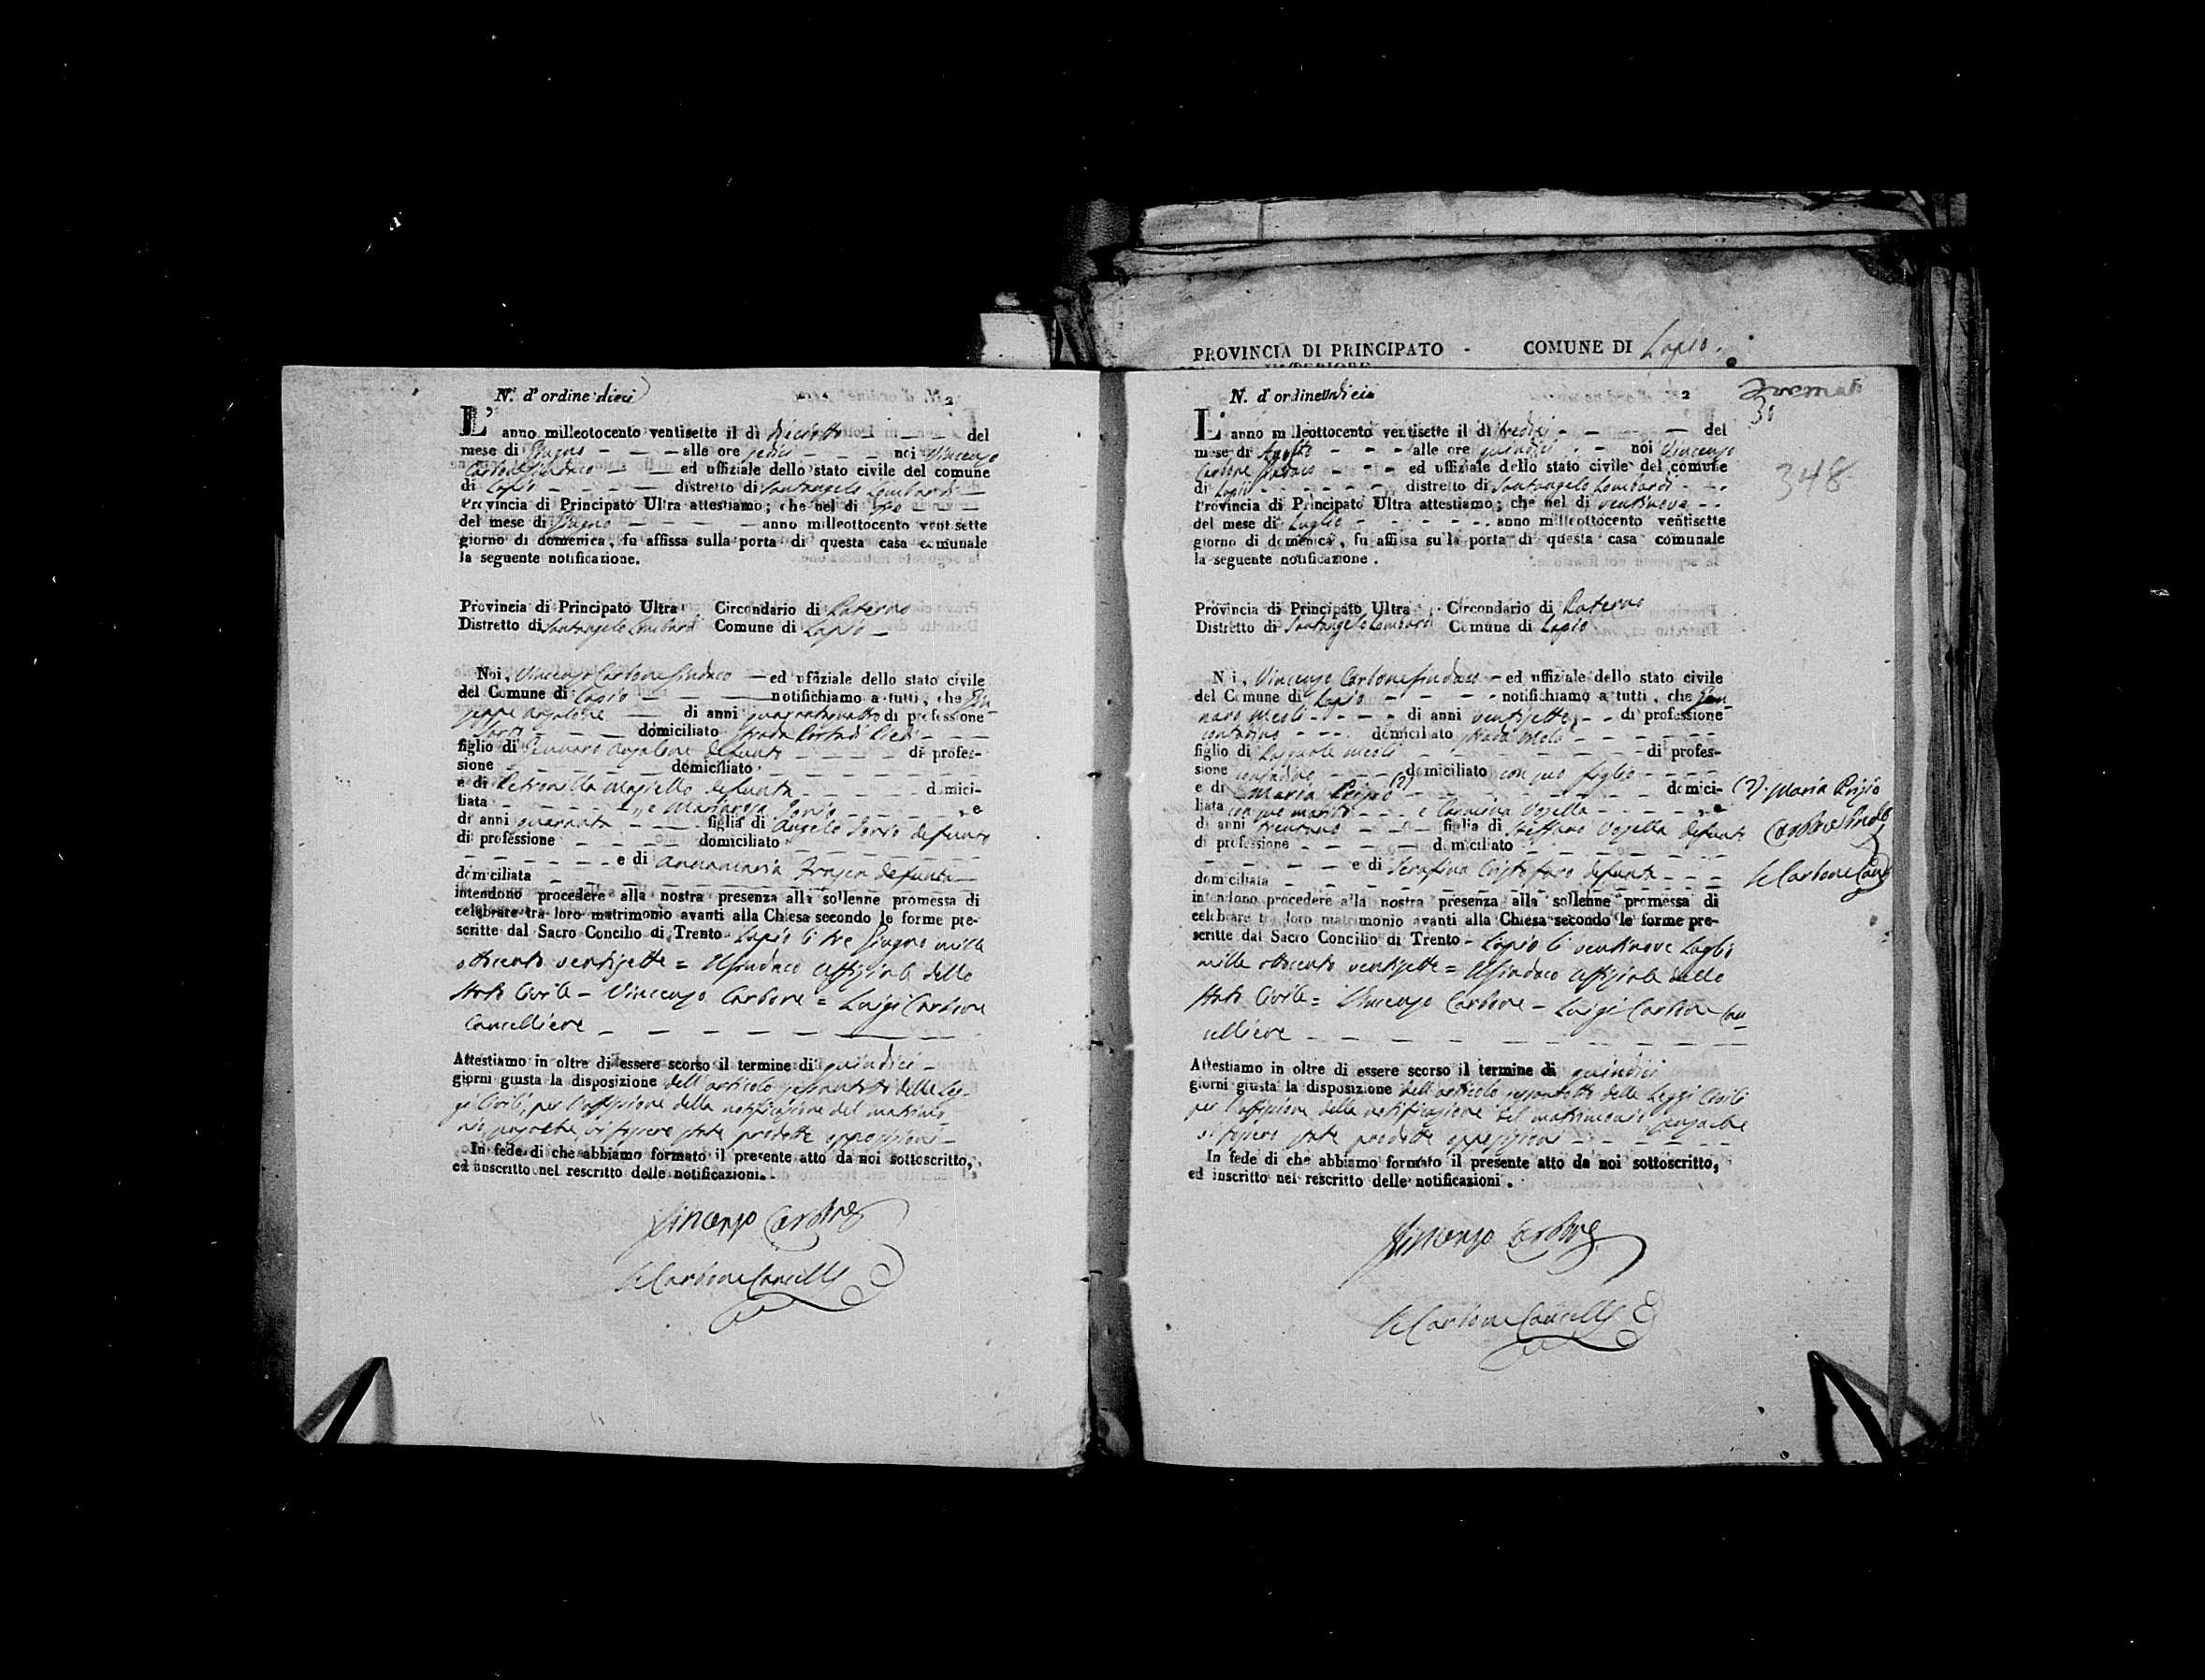 PROVINCIA DI PRINCIPATO - COMUNE DI Lapio.
N. d'ordine dieci
2
L'anno milleotocento ventisette il di dieciotto del
mese di Giugno alle ore sedici noi Vincenzo
Carbone Sindaco ed uffiziale dello stato civile del comune
di Lapio distretto di Santangelo Lombardi
Provincia di Principato Ultra attestiamo; che nel di tre
del mese di Giugno anno milleottocento ventisette
giorno di domenica, fu affissa sulla porta di questa casa comunale
la seguente notificazione.
Provincia di Principato Ultra Circondario di Paterno
Distretto di Santangelo Lombardi Comune di Lapio
Noi, Vincenzo Carbone Sindaco ed uffiziale dello stato civile
del Comune di Lapio notifichiamo a tutti, che Giu-
seppe di anni quarantaquattro di professione
domiciliato Strada Porta di
figlio di Gennaro defunto di profes-
sione domiciliato
e di Petronilla defunta domici-
liata e Mariarosa Iorio e
di anni quaranta figlia di Angelo Iorio defunto
di professione domiciliato
e di Annamaria defunta
domiciliata
intendono procedere alla nostra presenza alla sollenne promessa di
celebrare tra loro matrimonio avanti alla Chiesa secondo le forme pre-
scritte dal Sacro Concilio di Trento - Lapio li tre Giugno mille
ottocento ventisette = Il Sindaco Uffiziale dello
Stato Civile - Vincenzo Carbone = Luigi Carbone
Cancelliere
Attestiamo in oltre di essere scorso il termine di quindici
giorni giusta la disposizione dell'articolo sessantotto delle Leg-
gi Civili, per l'affissione della notificazione del matrimo-
nio senza che vi fossero state prodotte opposizioni
In fede di che abbiamo formato il presente atto da noi sottoscritto,
ed inscritto nel rescritto delle notificazioni.
Vincenzo Carbone
Le Carbone Cancelle
N. d'ordine undici
2
30
348
L'anno milleottocento ventisette il di tredici del
mese di Agosto alle ore quindici noi Vincenzo
Carbone Sindaco ed uffiziale dello stato civile del comune
di Lapio distretto di Santangelo Lombardi
Provincia di Principato Ultra attestiamo; che nel di ventinove
del mese di Luglio anno milleottocento ventisette
giorno di domenica, fu affissa sulla porta di questa casa comunale
la seguente notificazione.
Provincia di Principato Ultra Circondario di Paterno
Distretto di Santangelo Lombardi Comune di Lapio
Noi, Vincenzo Carbone Sindaco ed uffiziale dello stato civile
del Comune di Lapio notifichiamo a tutti, che Gen-
naro Meoli di anni ventisette di professione
contadino domiciliato Strada
figlio di Pasquale Meoli di profes-
sione contadino domiciliato con suo figlio
e di Maria Prizio (?) domici-
liata con suo marito e Carmina Vozella e
di anni figlia di Steffano Vozella defunto
di professione domiciliato
e di Serafina Cristofaro defunta
domiciliata
(?). Maria Prizio
Carbone Sindaco
Le Carbone Canc
intendono procedere alla nostra presenza alla sollenne promessa di
celebrare tra loro matrimonio avanti alla Chiesa secondo le forme pre-
scritte dal Sacro Concilio di Trento - Lapio li ventinove Luglio
mille ottocento ventisette = Il Sindaco Uffiziale dello
Stato Civile = Vincenzo Carbone - Luigi Carbone Can-
celliere
Attestiamo in oltre di essere scorso il termine di quindici
giorni giusta la disposizione dell'articolo sessantotto delle Leggi Civili
per l'affissione della notificazione del matrimonio senza che
vi fossero state prodotte opposizioni
In fede di che abbiamo formato il presente atto da noi sottoscritto,
ed inscritto nel rescritto delle notificazioni.
Vincenzo Carbone
Le Carbone Cancelle